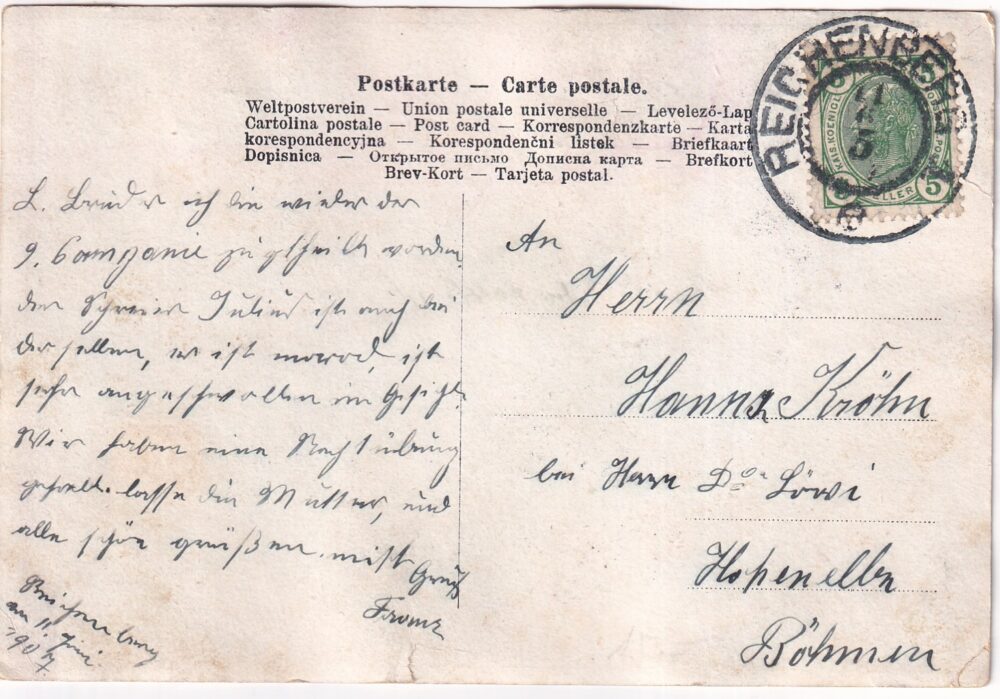 Postkarte — Carte postale.
Weltpostverein — Union postale universelle — Levelező-Lap
Cartolina postale — Post card — Korrespondenzkarte — Karta
korespondencyjna — Korespondenční listek — Briefkaart
Dopisnica — Открытое письмо Дописна карта — Brefkort
Brev-Kort — Tarjeta postal.
REICHENBERG
11
5
KAIS. KOENIGL.
5
HELLER
L. Bruder ich bin wieder der
9. Companie zugtheilt worden.
der Julius ist auch bei
derselben, er ist marod, ist
sehr angeschwollen im Gesicht.
Wir haben eine Nachtübung
gehabt. lasse die Mutter, und
alle schön grüßen. mist
Gruß
Franz
Reichenberg
am 11 Juni
1907.
An
Herrn
Hanns Kröhn
bei Herrn Dor Löwi
Hohenelbe
Böhmen